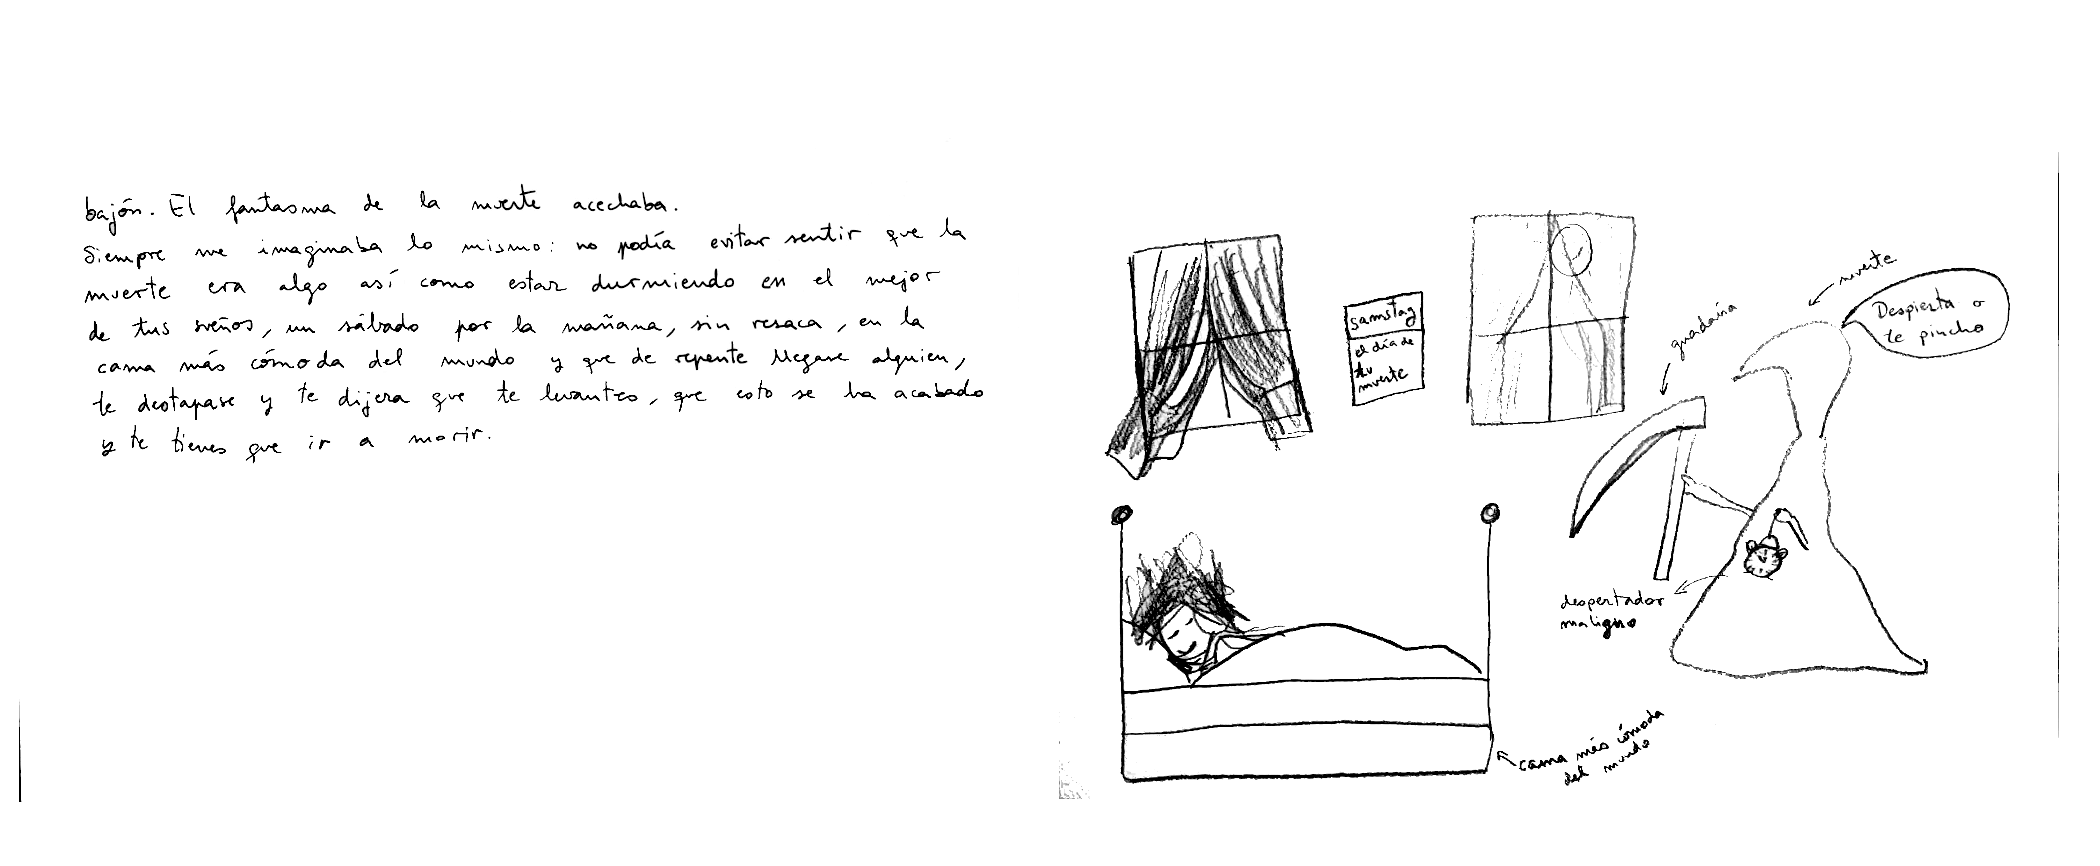 bajón. El fantasma de la muerte acechaba.
Siempre me imaginaba lo mismo: no podía evitar sentir que la
muerte era algo así como estar durmiendo en el mejor
de tus sueños, un sábado por la mañana, sin resaca, en la
cama más cómoda del mundo y que de repente llegase alguien,
te destapase y te dijera que te levantes, que esto se ha acabado
y te tienes que ir a morir.
samstag
el día de
tu
muerte
muerte
guadaña
Despierta o
te pincho
despertador
maligno
cama más cómoda
del mundo